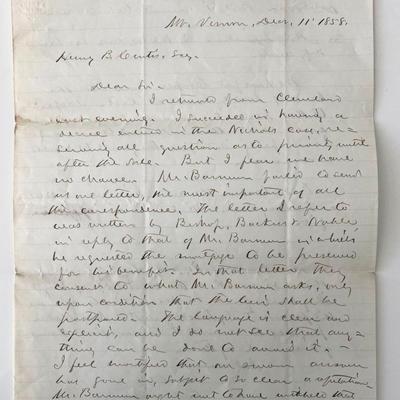 Mt. Vernon, Dec. 11' 1858.
Henry B. Curtis, Esq.
Dear Sir.
I returned from Cleveland
last evening. I succeeded in having a
decree entered in the Nichols case, re-
serving all question as to priority until
after the sale. But I fear we have
no chance. Mr. Barnum failed to send
us one letter, the most important of all
the correspondence. The letter I refer to
was written by Bishop, Backus & Noble
in reply to that of Mr. Barnum in which
he requested the mortgage to be preserved
for his benefit. In that letter they
consent to what Mr. Barnum asks, only
upon condition that the lien shall be
postponed. The language is clear and
explicit, and I do not see that any-
thing can be done to avoid it.
I feel mortified that our sworn answer
has gone in, subject to so clear a refutation
Mr. Barnum ought not to have withheld that